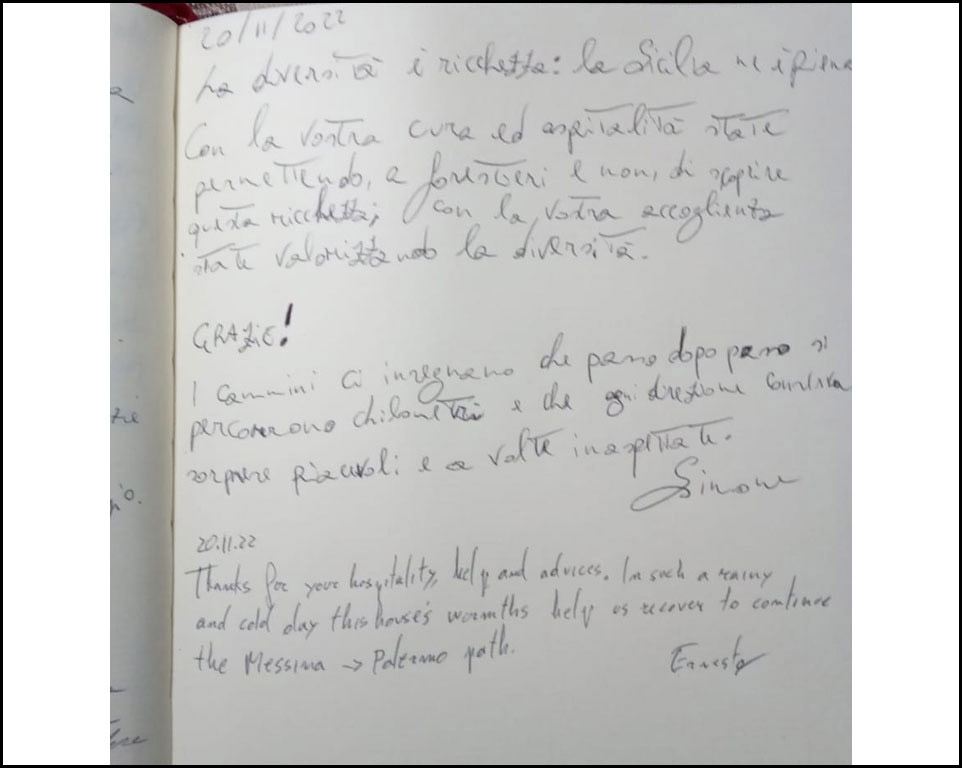 20/11/2022
La diversità è ricchezza: la Sicilia ne è piena
Con la vostra cura ed ospitalità state
permettendo, a forestieri e non, di scoprire
questa ricchezza; con la vostra accoglienza
state valorizzando la diversità.
GRAZIE!
I cammini ci insegnano che passo dopo passo si
percorrono chilometri e che ogni direzione
sorprese piacevoli e a volte inaspettate.
Simone
20.11.22
Thanks for your hospitality, help and advices. In such a rainy
and cold day this house's warmths help us recover to continue
the Messina → Palermo path.
Ernesto